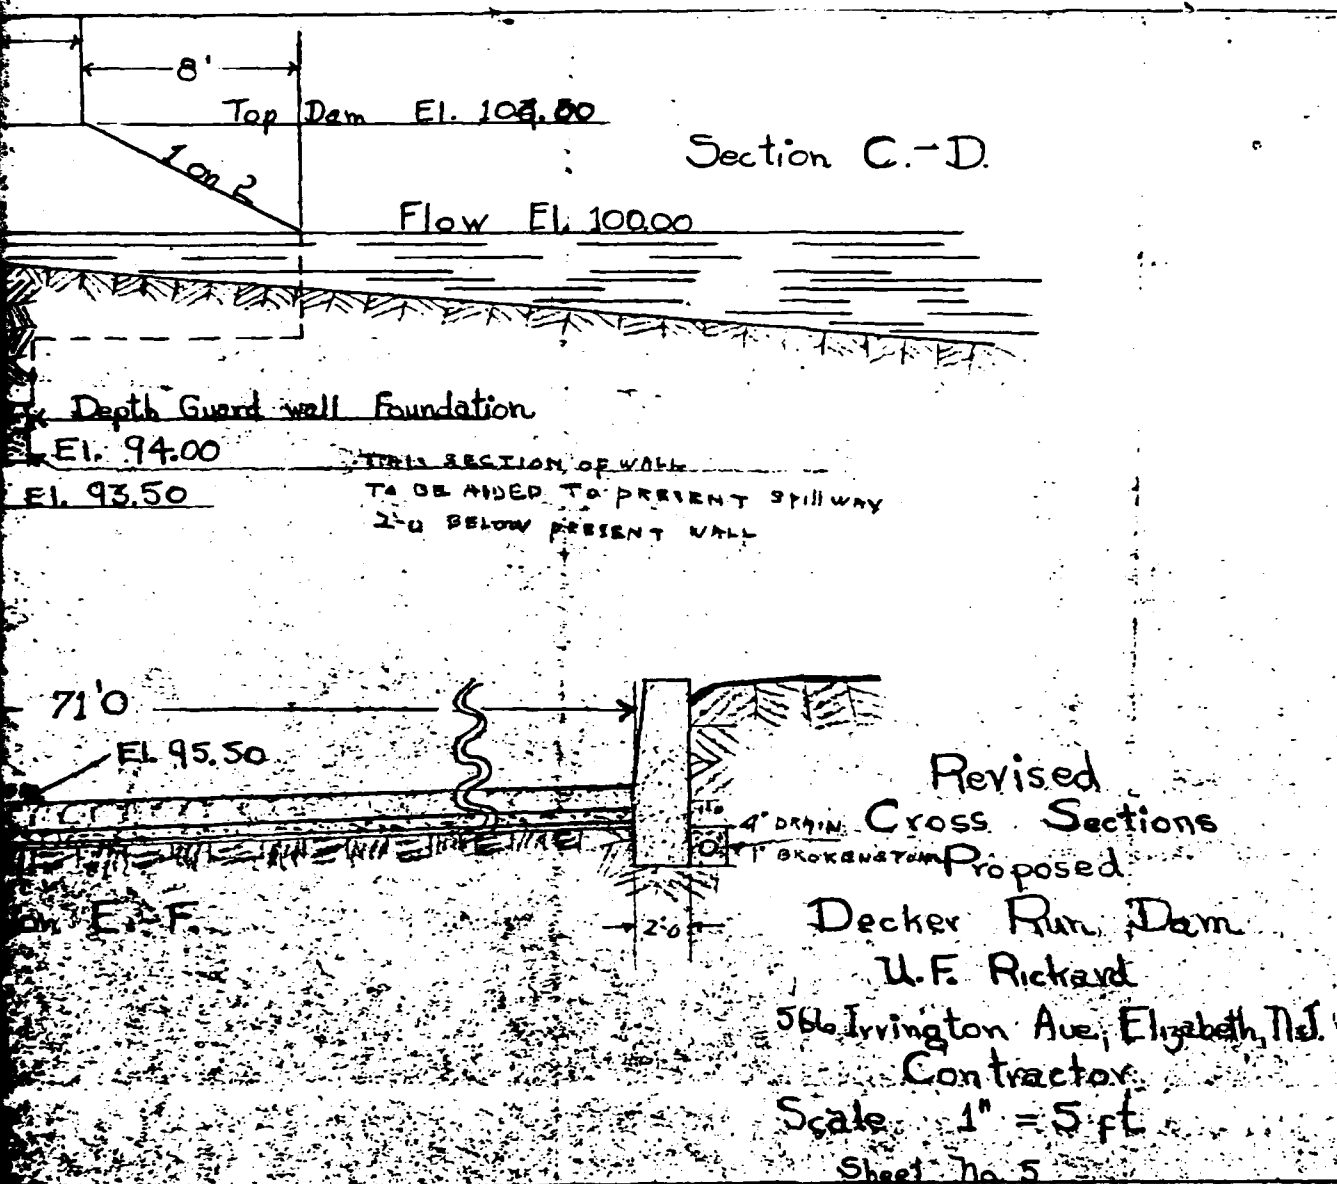 8'
Top Dam El.
Section C.-D.
1 on 2
Flow El. 100.00
Depth Guard wall Foundation
El. 94.00
El. 93.50
THIS SECTION OF WALL
TO BE ADDED TO PRESENT SPillWAY
2'-0 BELOW PRESENT WALL
71'0
El. 95.50
4" DRAIN
1" BROKENSTONE
E-F.
2'0
Revised
Cross Sections
Proposed
Decker Run Dam
U.F. Rickard
566 Irvington Ave, Elizabeth, N.J.
Contractor
Scale 1" = 5 ft
Sheet No 5